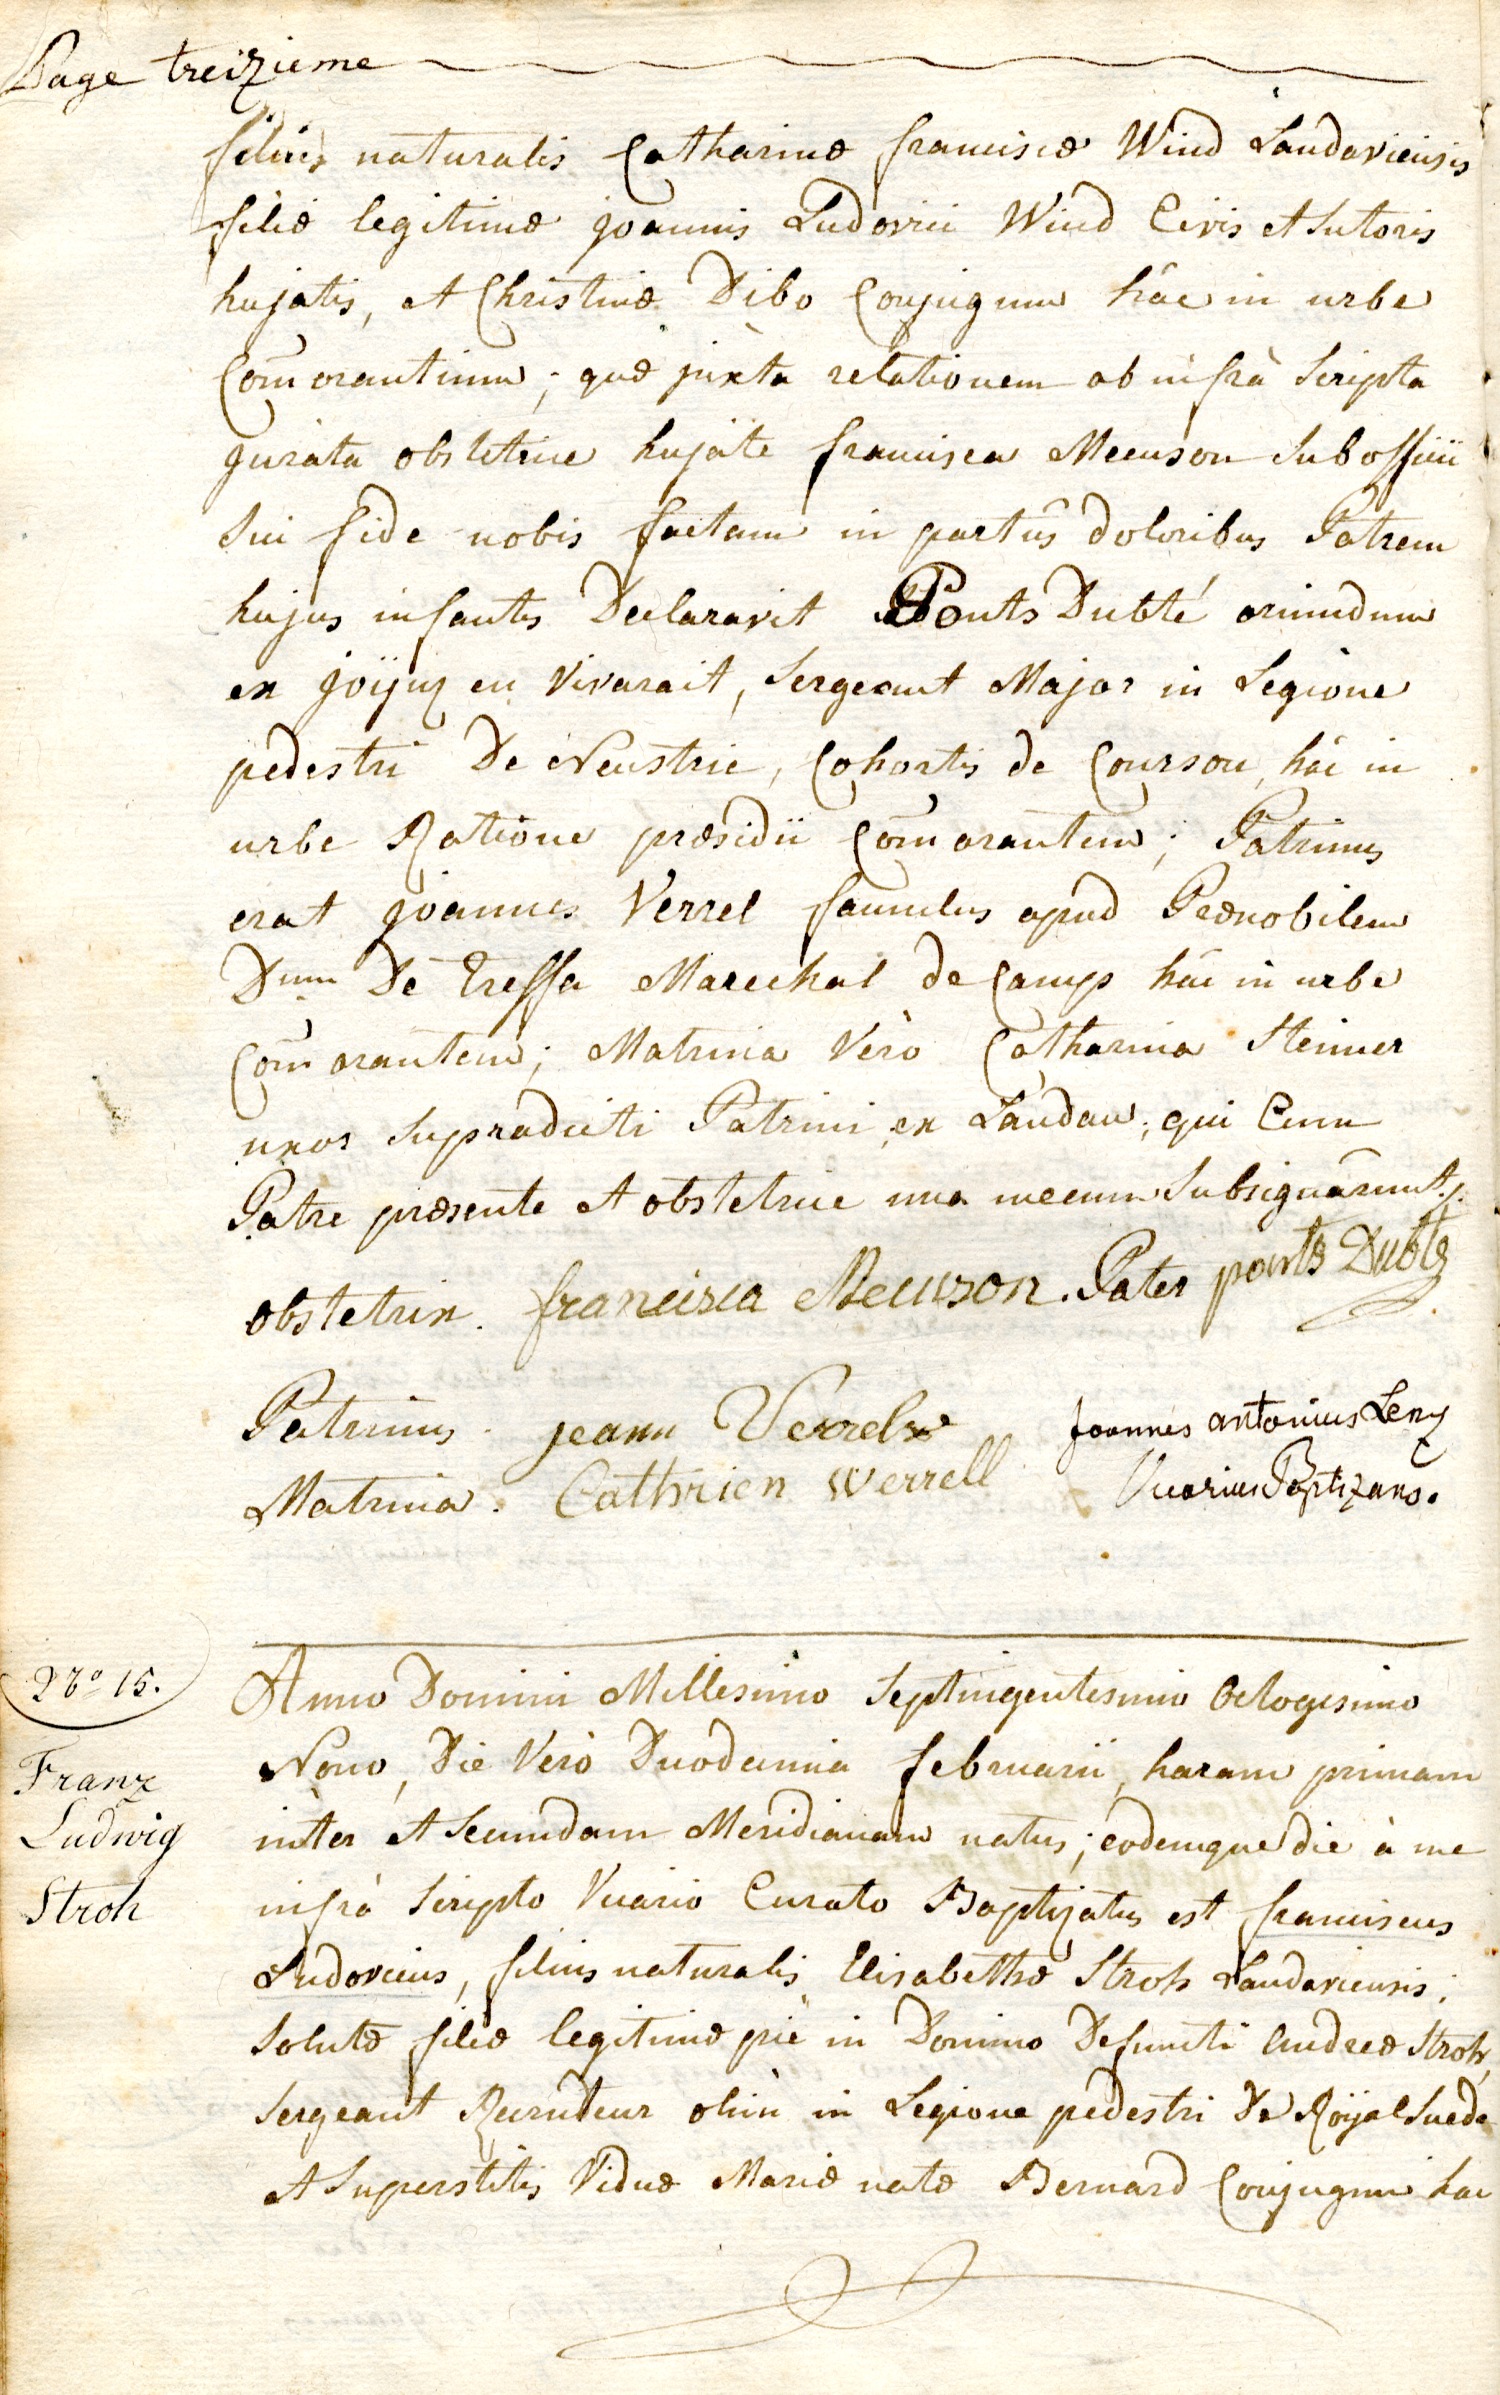 Page treizieme
filius naturalis Catharinæ franciscæ Wind Landaviensis
filiæ legitimæ joannis Ludovici Wind Civis et Sutoris
hujatis, et Christinæ Dibo Conjugum hâc in urbe
Com̄orantium; quæ juxta relationem ab infrà Scripta
jurata obstetrice hujate francisca Meeuson Sub officii
Sui fide nobis factam in partûs doloribus Patrem
hujus infantis Declaravit Ponts Dubté oriundum
ex en Vivarait, Sergeant Major in Legione
pedestri De Neustrie, Cohortis de Courson, hâc in
urbe Ratione præsidii Com̄orantem; Patrinus
erat joannes Verrel famulus apud Prænobilem
Dnum De Treffa Marechal de Camps hâc in urbe
Com̄orantem; Matrina Verò Catharina Steimer
uxor Supradicti Patrini ex Landau; qui Cum
Patre præsente et obstetrice una mecum Subsignârunt.
obstetrix. francisca Meeuson. Pater ponts Dubte
Patrinus. jeann Verrel Joannes antonius Lenz
Matrina. Cathrien Werrell Vicarius Baptizans.
No 15.
Anno Domini Millesimo Septingentesimo Octogesimo
Nono, Die Verò Duodecima februarii, horam primam
Franz
Ludwig
Stroh
inter et Secundam Meridianam natus; eodemque die à me
infrà Scripto Vicario Curato Baptizatus est franciscus
Ludovicus, filius naturalis Elisabethæ Stroh Landaviensis;
Solutæ filiæ legitimæ piè in Domino Defuncti Andreæ Stroh,
Sergeant Recruteur olim in Legione pedestri De Roÿal Suede
et Superstitis Viduæ Mariæ natæ Bernard Conjugum hac